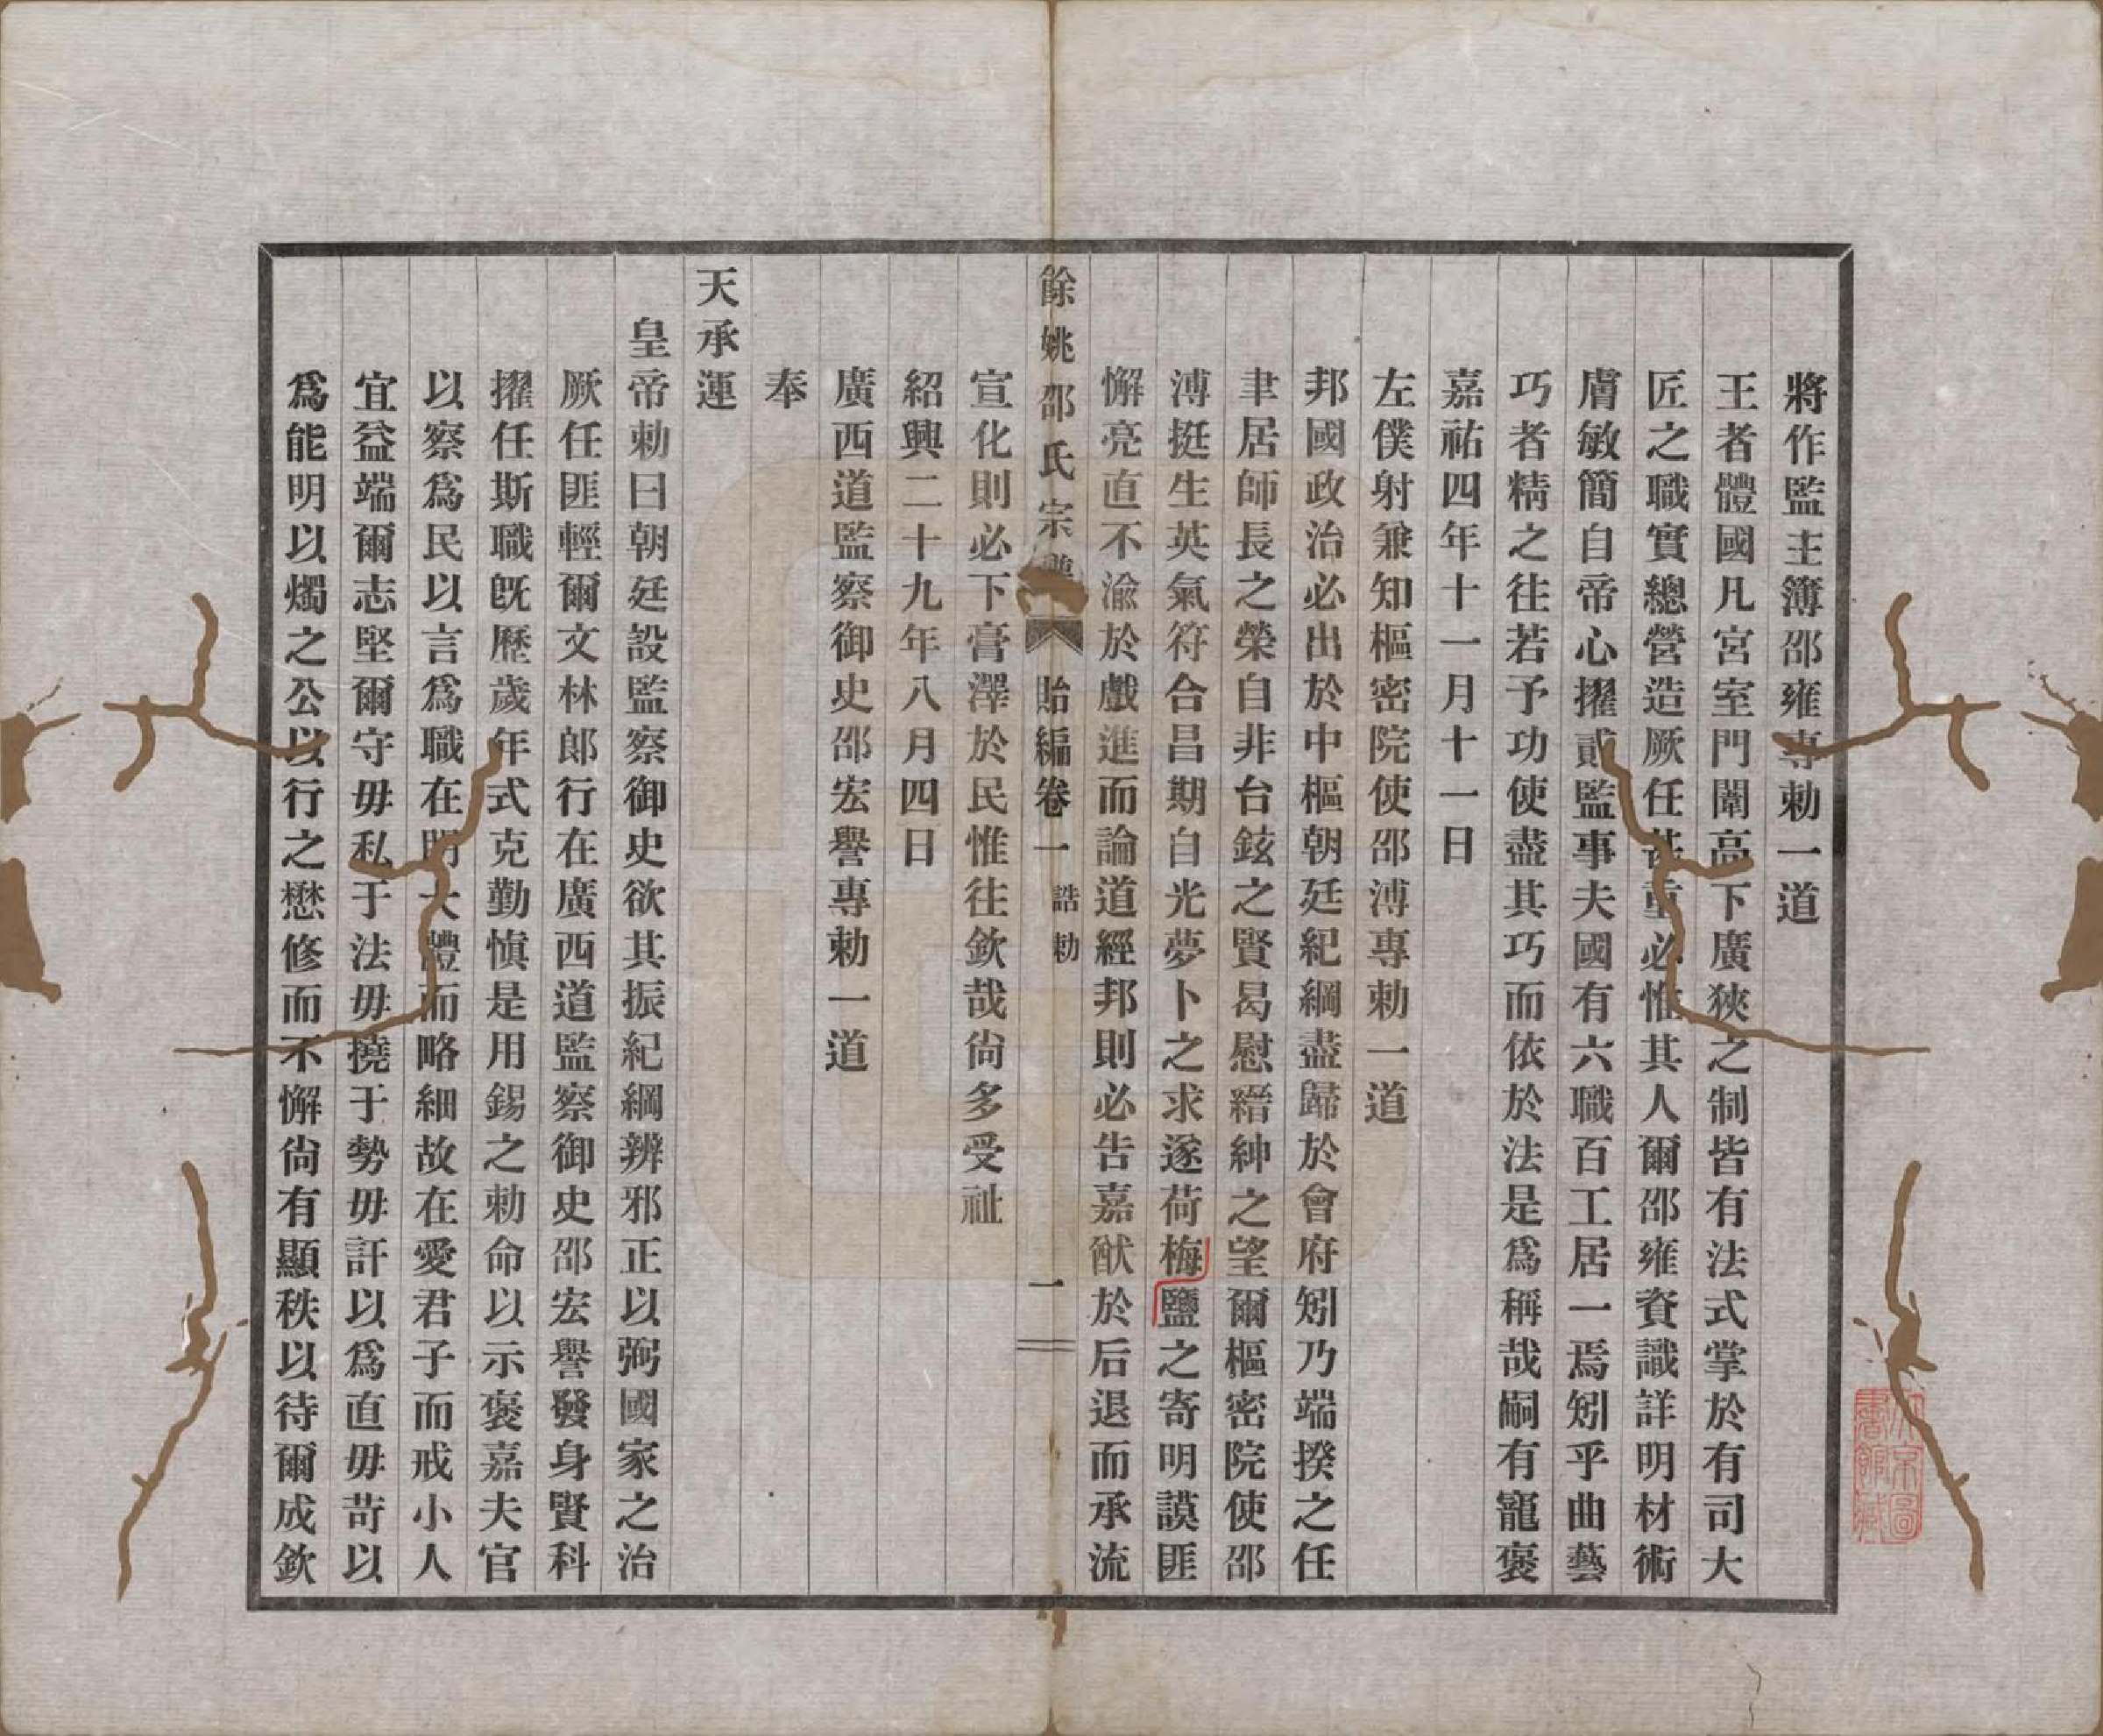 將作監主簿邵雍專勅一道
王者體國凡宮室門闈高下廣狹之制皆有法式掌於有司大
匠之職實總營造厥任甚重必惟其人爾邵雍資識詳明材術
膚敏簡自帝心擢貳監事夫國有六職百工居一焉矧乎曲藝
巧者精之往若予功使盡其巧而依於法是爲稱哉嗣有寵褒
嘉祐四年十一月十一日
左僕射兼知樞密院使邵溥專勅一道
邦國政治必出於中樞朝廷紀綱盡歸於會府矧乃端揆之任
聿居師長之榮自非台鉉之賢曷慰縉紳之望爾樞密院使邵
溥挺生英氣符合昌期自光夢卜之求遂荷梅鹽之寄明謨匪
懈亮直不渝於戲進而論道經邦則必告嘉猷於后退而承流
宣化則必下膏澤於民惟往欽哉尙多受祉
紹興二十九年八月四日
廣西道監察御史邵宏譽專勅一道
奉
天承運
皇帝勅曰朝廷設監察御史欲其振紀綱辨邪正以弼國家之治
厥任匪輕爾文林郎行在廣西道監察御史邵宏譽發身賢科
擢任斯職旣歷歲年式克勤愼是用錫之勅命以示褒嘉夫官
以察爲民以言爲職在明大體而略細故在愛君子而戒小人
宜益端爾志堅爾守毋私于法毋撓于勢毋訐以爲直毋苛以
爲能明以燭之公以行之懋修而不懈尙有顯秩以待爾成欽
餘姚邵氏宗譜 貽編卷一 誥勅 一